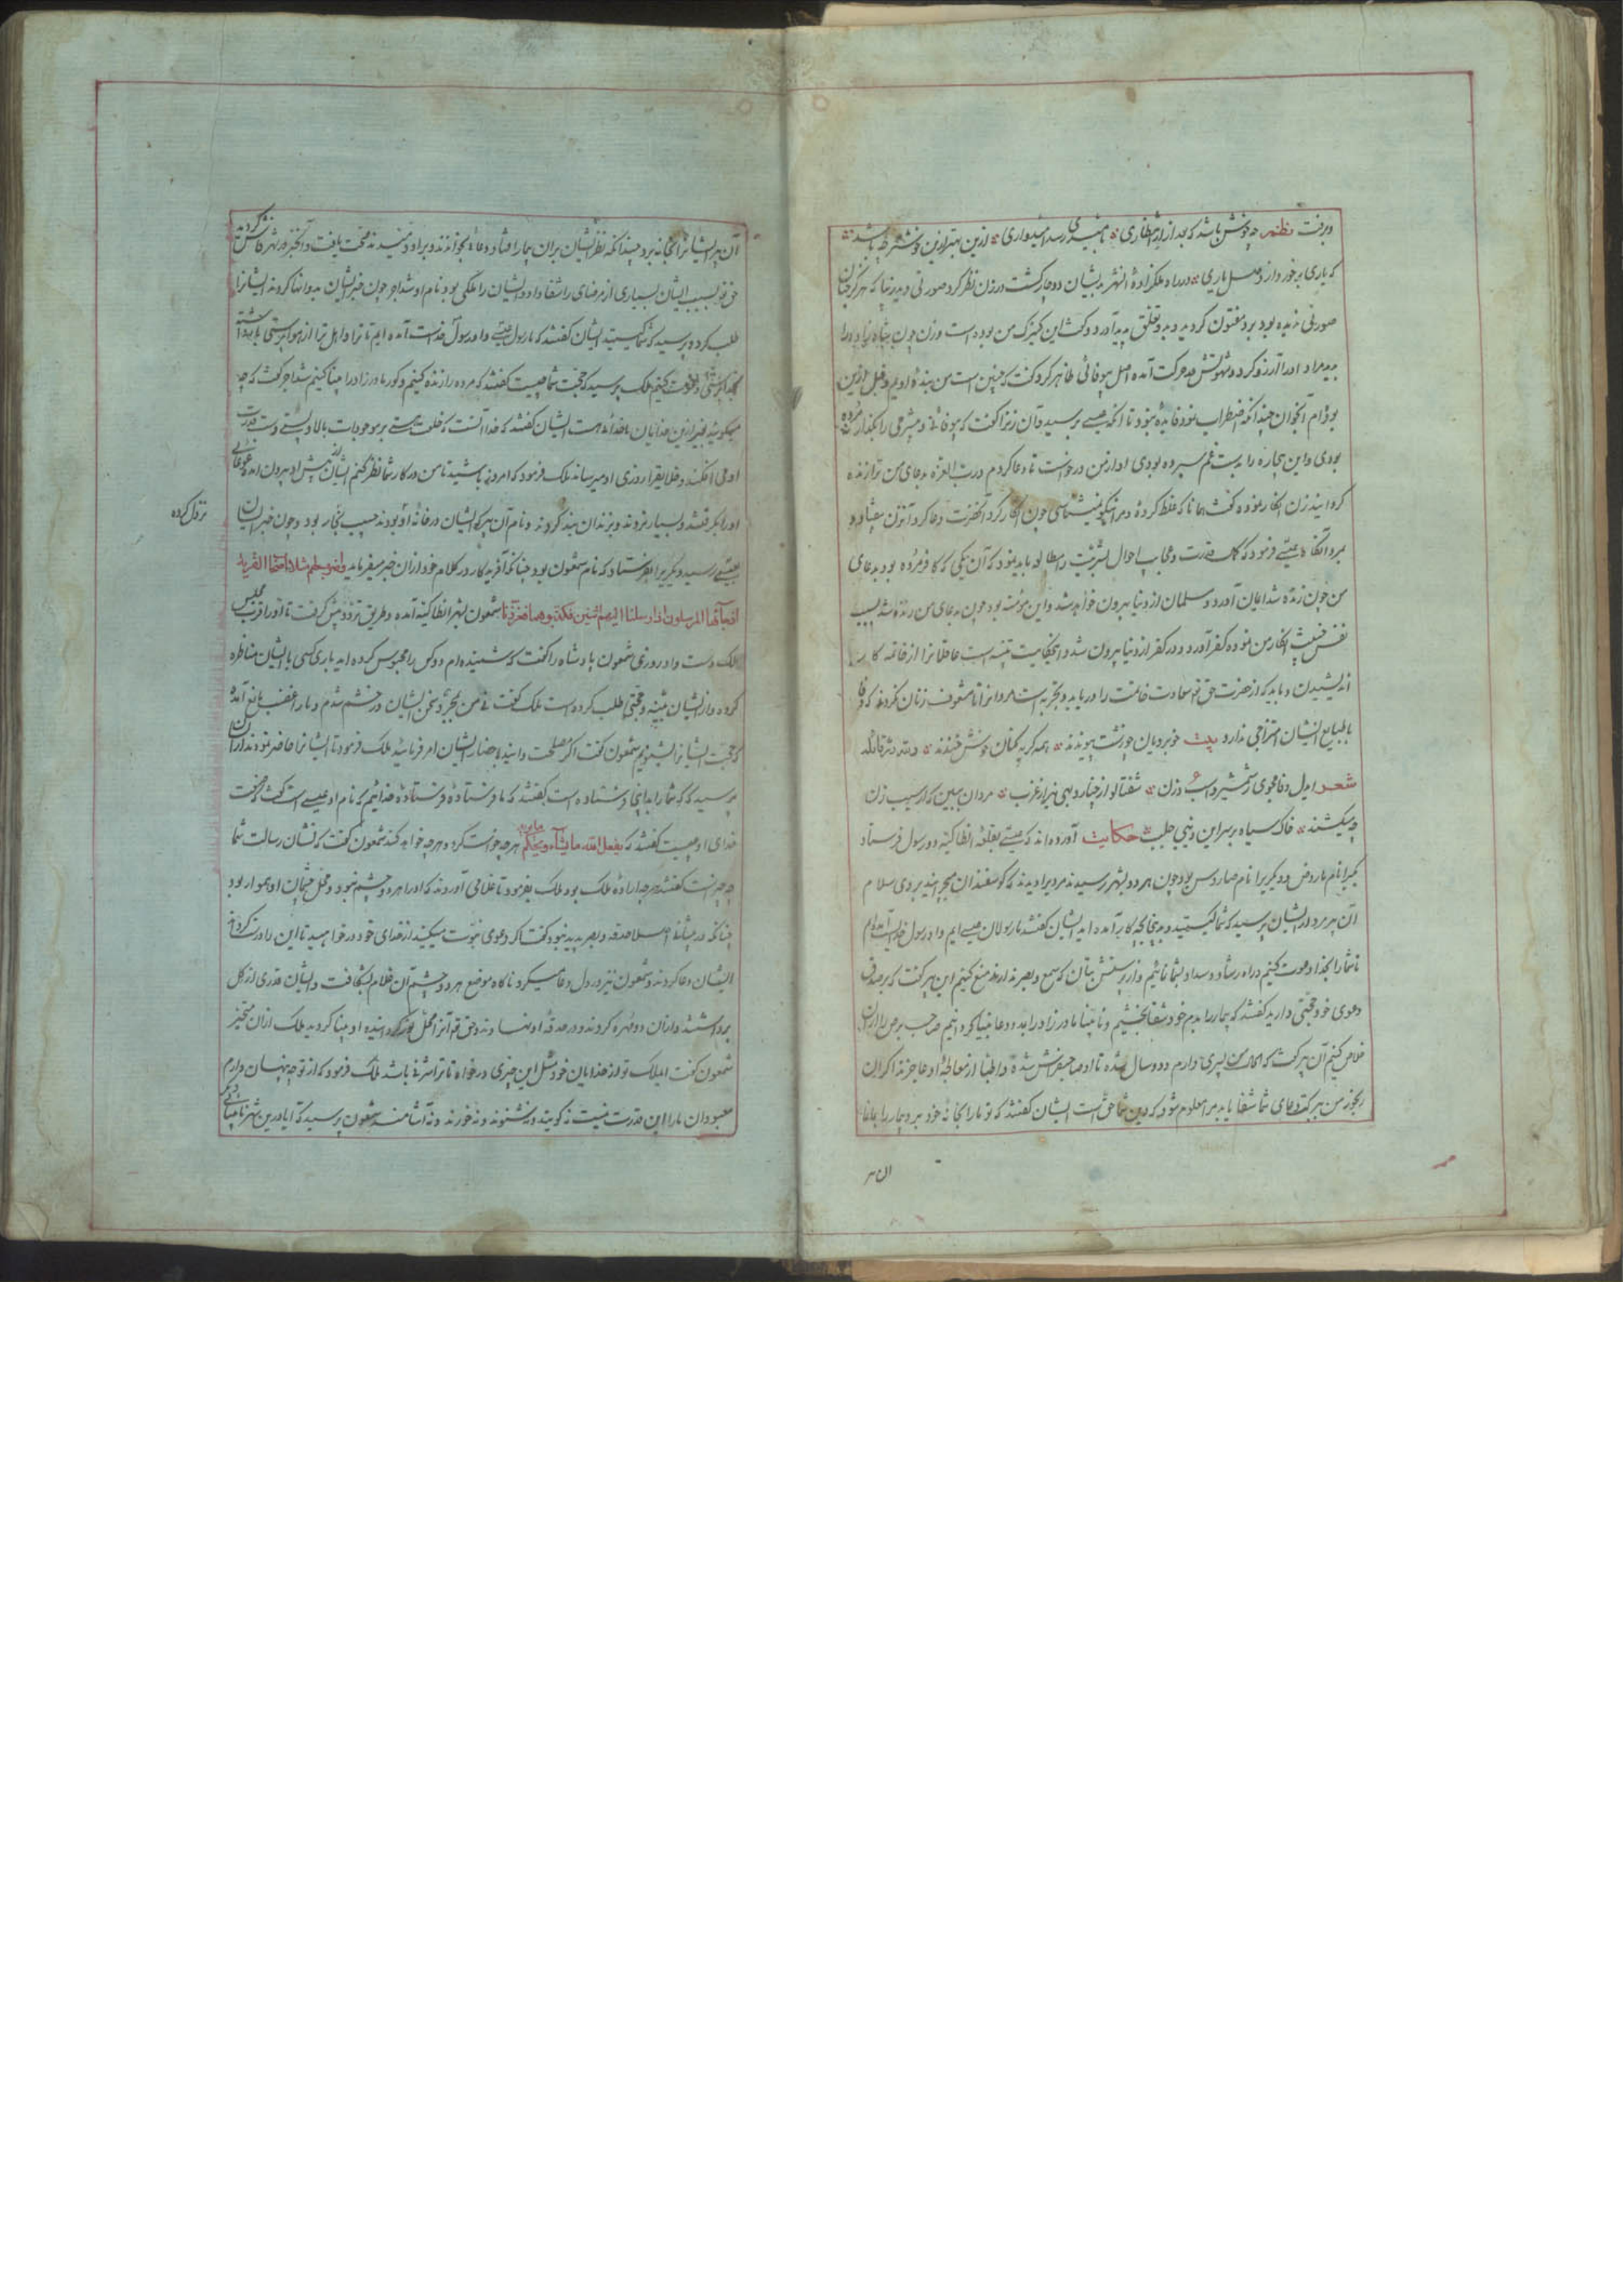 و برفت نظم چه خوش باشد که بعد از انتظاری بامیدی رسد امیدواری ازین بهتر و زین خوشتر چه باشد
که یاری برخورد از وصل یاری در راه ملکزاده آنشهر بدیشان دوچار گشت در زن نظر کرد صورتی دید زیبا که هرگز چنان
صورتی ندیده بود برو مفتون گردید و بدو تعلق پدید آورد و گفت این کنیزک من بوده است و زن چون
بدید مراد او را آرزو کرد و شهوتش در حرکت آمده اصل بیوفائی ظاهر کرد گفت که چنین است من بنده اویم و قبل ازین
بوده‌ام آنجوان چندانکه اضطراب نمود فایده نبود تا آنکه عیسی برسید و آن زنرا گفت که بیوفائی و بیشرمی را بگذار مرده
بودی و این بیچاره را بدست غم سپرده بودی او از من درخواست تا دعا کردم و رب العزه بدعای من ترا زنده
گردانید زن انکار نموده گفت همانا که غلط کرده مرا نیکو نمیشناسی چون انکار کرد آنحضرت دعا کرد آنزن بیفتاد و
بمرد آنگاه عیسی فرمود که کمال قدرت و عجایب احوال بشریت را مطالعه باید نمود که آن یکی که کافر مرده بود بدعای
من چون زنده شد ایمان آورد و مسلمان از دنیا بیرون خواهد شد و این مؤمنه بود چون بدعای من زنده شد بسبب
نفس خبیث انکار من نموده کفر آورد و در کفر از دنیا بیرون شد و اینحکایت تنبیه است عاقلانرا از خاتمه کار
اندیشیدن و باید که از حضرت حق تع سعادت خاتمت را دریابد و تجربه است مردانرا تا مشعوف زنان نگردند که وفا
با طبایع ایشان امتزاجی ندارد بیت خوبرویان چو زشت پیوندند همه گریه کنان خوش خندند و لله در قائله
شعر ای دل وفا مجوی ز شمشیر و اسب و زن شفتالو از چنار و بهی نیز از غرب مردان ببین که از سبب زن
چه میکشند خاک سیاه بر سر این دنبی جلب حکایت آورده‌اند که عیسی بقلعه انطاکیه دو رسول فرستاد
یکیرا نام ماروض و دیگریرا نام صاروس بود چون هر دو بشهر رسیدند مردیرا دیدند که گوسفندان میچرانید بروی سلام
آن پیرمرد از ایشان پرسید که شما کیستید و بدینجا بچه کار آمده اید ایشان گفتند ما رسولان عیسی ایم و او رسول خداست آمده‌ایم
تا شما را بخدا دعوت کنیم و راه رشاد و سداد بشما نمائیم و از پرستش بتان که سمع و بصر ندارند منع کنیم این پیر گفت که بر صدق
دعوی خود حجتی دارید گفتند که بیمار را بدم خود شفا بخشیم و نابینا مادرزاد را بمدد دعا بینا گردانیم صاحب برص را از آن
خلاص کنیم آن پیر گفت که من پسری دارم دو سال شده تا او صاحبفراش شده و اطبا از معالجه او عاجزند اگر آن
رنجور من ببرکت دعای شما شفا یابد مرا معلوم شود که دین شما حق است ایشان گفتند که تو ما را بخانه خود بر و بیمار را بما نما
آن پیر ایشانرا بخانه برد چندانکه نظر ایشان بر آن بیمار افتاد و دعاء بخواندند و بر او دمیدند صحت یافت و آنخبر در شهر فاش کردند
حق تع بسبب ایشان بسیاری از مرضای را شفا داد و ایشان را ملکی بود نام او شداجر چون خبر ایشان بدو انها کردند ایشانرا
طلب کرده پرسید که شما کیستید ایشان گفتند که ما رسول عیسی و او رسول خداست آمده ایم تا ترا و اهل ترا از هواپرستی بازداشته
بخداپرستی دعوت کنیم ملک پرسید که حجت شما چیست گفتند که مرده را زنده کنیم و کور مادرزاد را بینا کنیم شداجر گفت که چه
میگوئید بغیر ازین خدایان ما خدائی هست ایشان گفتند که خدا آنست که خلعت هستی بر موجودات بالا و پستی دست قدرت
او می افکند و خلایقرا روزی او میرساند ملک فرمود که امروز باشید تا من در کار شما نظر کنم ایشان از پیش او بیرون آمدند عوغائی
او را بگرفتند و بسیار بزدند و بزندان بند کردند و نام آن پیر که ایشان در خانه او بودند حبیب نجار بود و چون خبر ایشان
بعیسی رسید دیگریرا بفرستاد که نام شمعون بود چنانکه آفریدکار در کلام خود از آن خبر میفرماید واضرب لهم مثلا اصحاب القریة
اذ جآءها المرسلون اذ ارسلنا الیهم اثنین فکذبوهما فعززنا شمعون بشهر انطاکیه آمده و طریق تردد پیش گرفت تا او را قرب مجلس
ملک دست داد روزی شمعون پادشاه را گفت که شنیده‌ام دو کس را محبوس کرده اید باری کسی با ایشان مناظره
کرده و از ایشان بینه و حجتی طلب کرده است ملک گفت نی من بمجرد سخن ایشان در خشم شدم و نار غضب مانع آمده
که حجت ایشانرا بشنویم شمعون گفت اگر مصلحت دانید باحضار ایشان امر فرمائید ملک فرمود تا ایشانرا حاضر نمودند از ایشان
پرسید که که شما را بداینجا فرستاده است گفتند که ما فرستاده فرستاده خدائیم که نام او عیسی است گفت صفت
خدای او چیست گفتند که یفعل الله ما یشآء و یحکم ما یرید هر چه خواست کرد و هر چه خواهد کند شمعون گفت که نشان رسالت شما
چه چیز است گفتند هر چه اراده ملک بود ملک بفرمود تا غلامی آوردند که او را هر دو چشم نبود و محل چشمان او هموار بود
چنانکه در پیشانی اصلا حدقه و بصر پدید نبود گفت اگر دعوی نبوت میکنید از خدای خود درخواهید تا این را درست گرداند
ایشان دعا کردند و شمعون نیز در دل دعا میکرد ناگاه موضع هر دو چشم آن غلام بشکافت و ایشان قدری از گل
برداشتند و از آن دو مهره کردند و در حدقه او نهادند و حق تع آنرا محل نور گردانیده او بینا گردید ملک از آن متحیر
شمعون گفت ایملک تو از خدایان خود مثل این چیزی درخواه تا ترا شرفی باشد ملک فرمود که از تو چه پنهان دارم
معبودان ما را این قدرت نیست نه گویند و نه شنوند و نه خورند و نه آشامند شمعون پرسید که آیا درین شهر نابینائی
تردد کرده